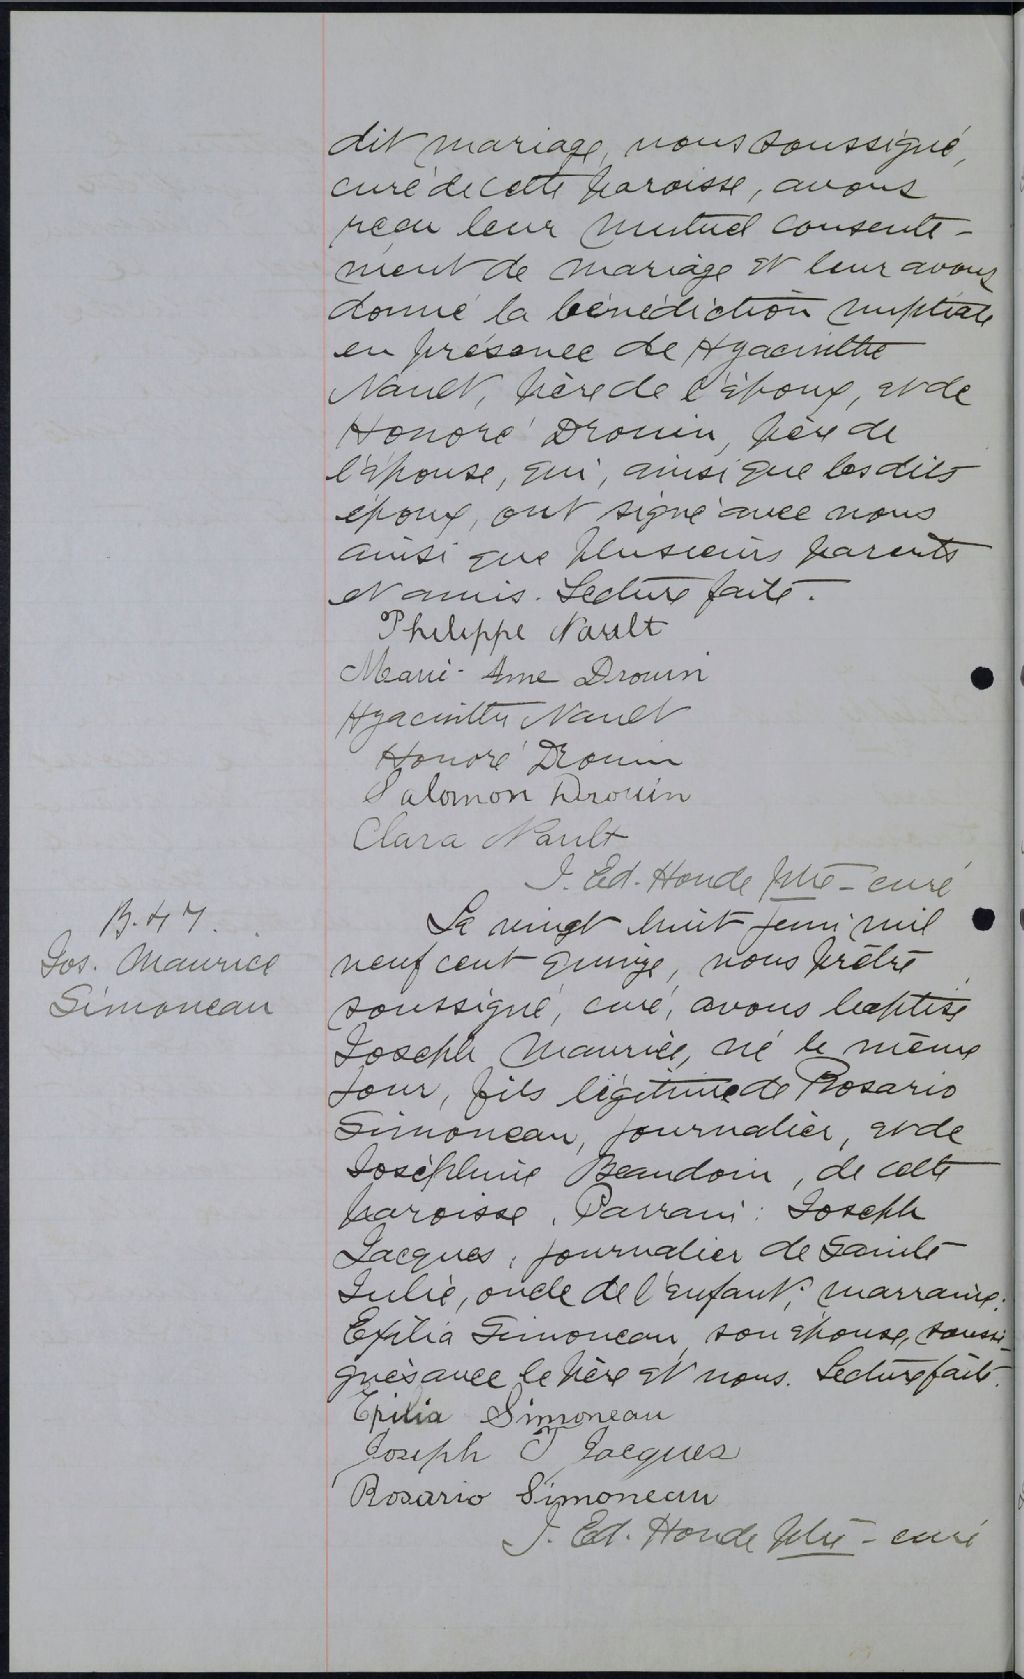 dit mariage, nous soussigné,
curé de cette paroisse, avons
reçu leur mutuel consente-
ment de mariage et leur avons
donné la bénédiction nuptiale
en présence de Hyacinthe
Nault, père de l'époux, et de
Honoré Drouin, père de
l'épouse, qui, ainsi que les dits
époux, ont signé avec nous
ainsi que plusieurs parents
et amis. Lecture faite.
Philippe Nault
Marie-Anne Drouin
Hyacinthe Nault
Honoré Drouin
Salomon Drouin
Clara Nault
J. Ed. Houde ptre-curé
B. 47.
Jos. Maurice
Simoneau
Le vingt huit juin mil
neuf cent quinze, nous prêtre
soussigné, curé, avons baptisé
Joseph Maurice, né le même
jour, fils légitime de Rosario
Simoneau, journalier, et de
Joséphine Beaudoin, de cette
paroisse. Parrain: Joseph
Jacques, journalier de Sainte
Julie, oncle de l'enfant; marraine:
Exilia Simoneau, son épouse, soussi-
gnés avec le père et nous. Lecture faite.
Exilia Simoneau
Joseph T Jacques
Rosario Simoneau
J. Ed. Houde ptre-curé